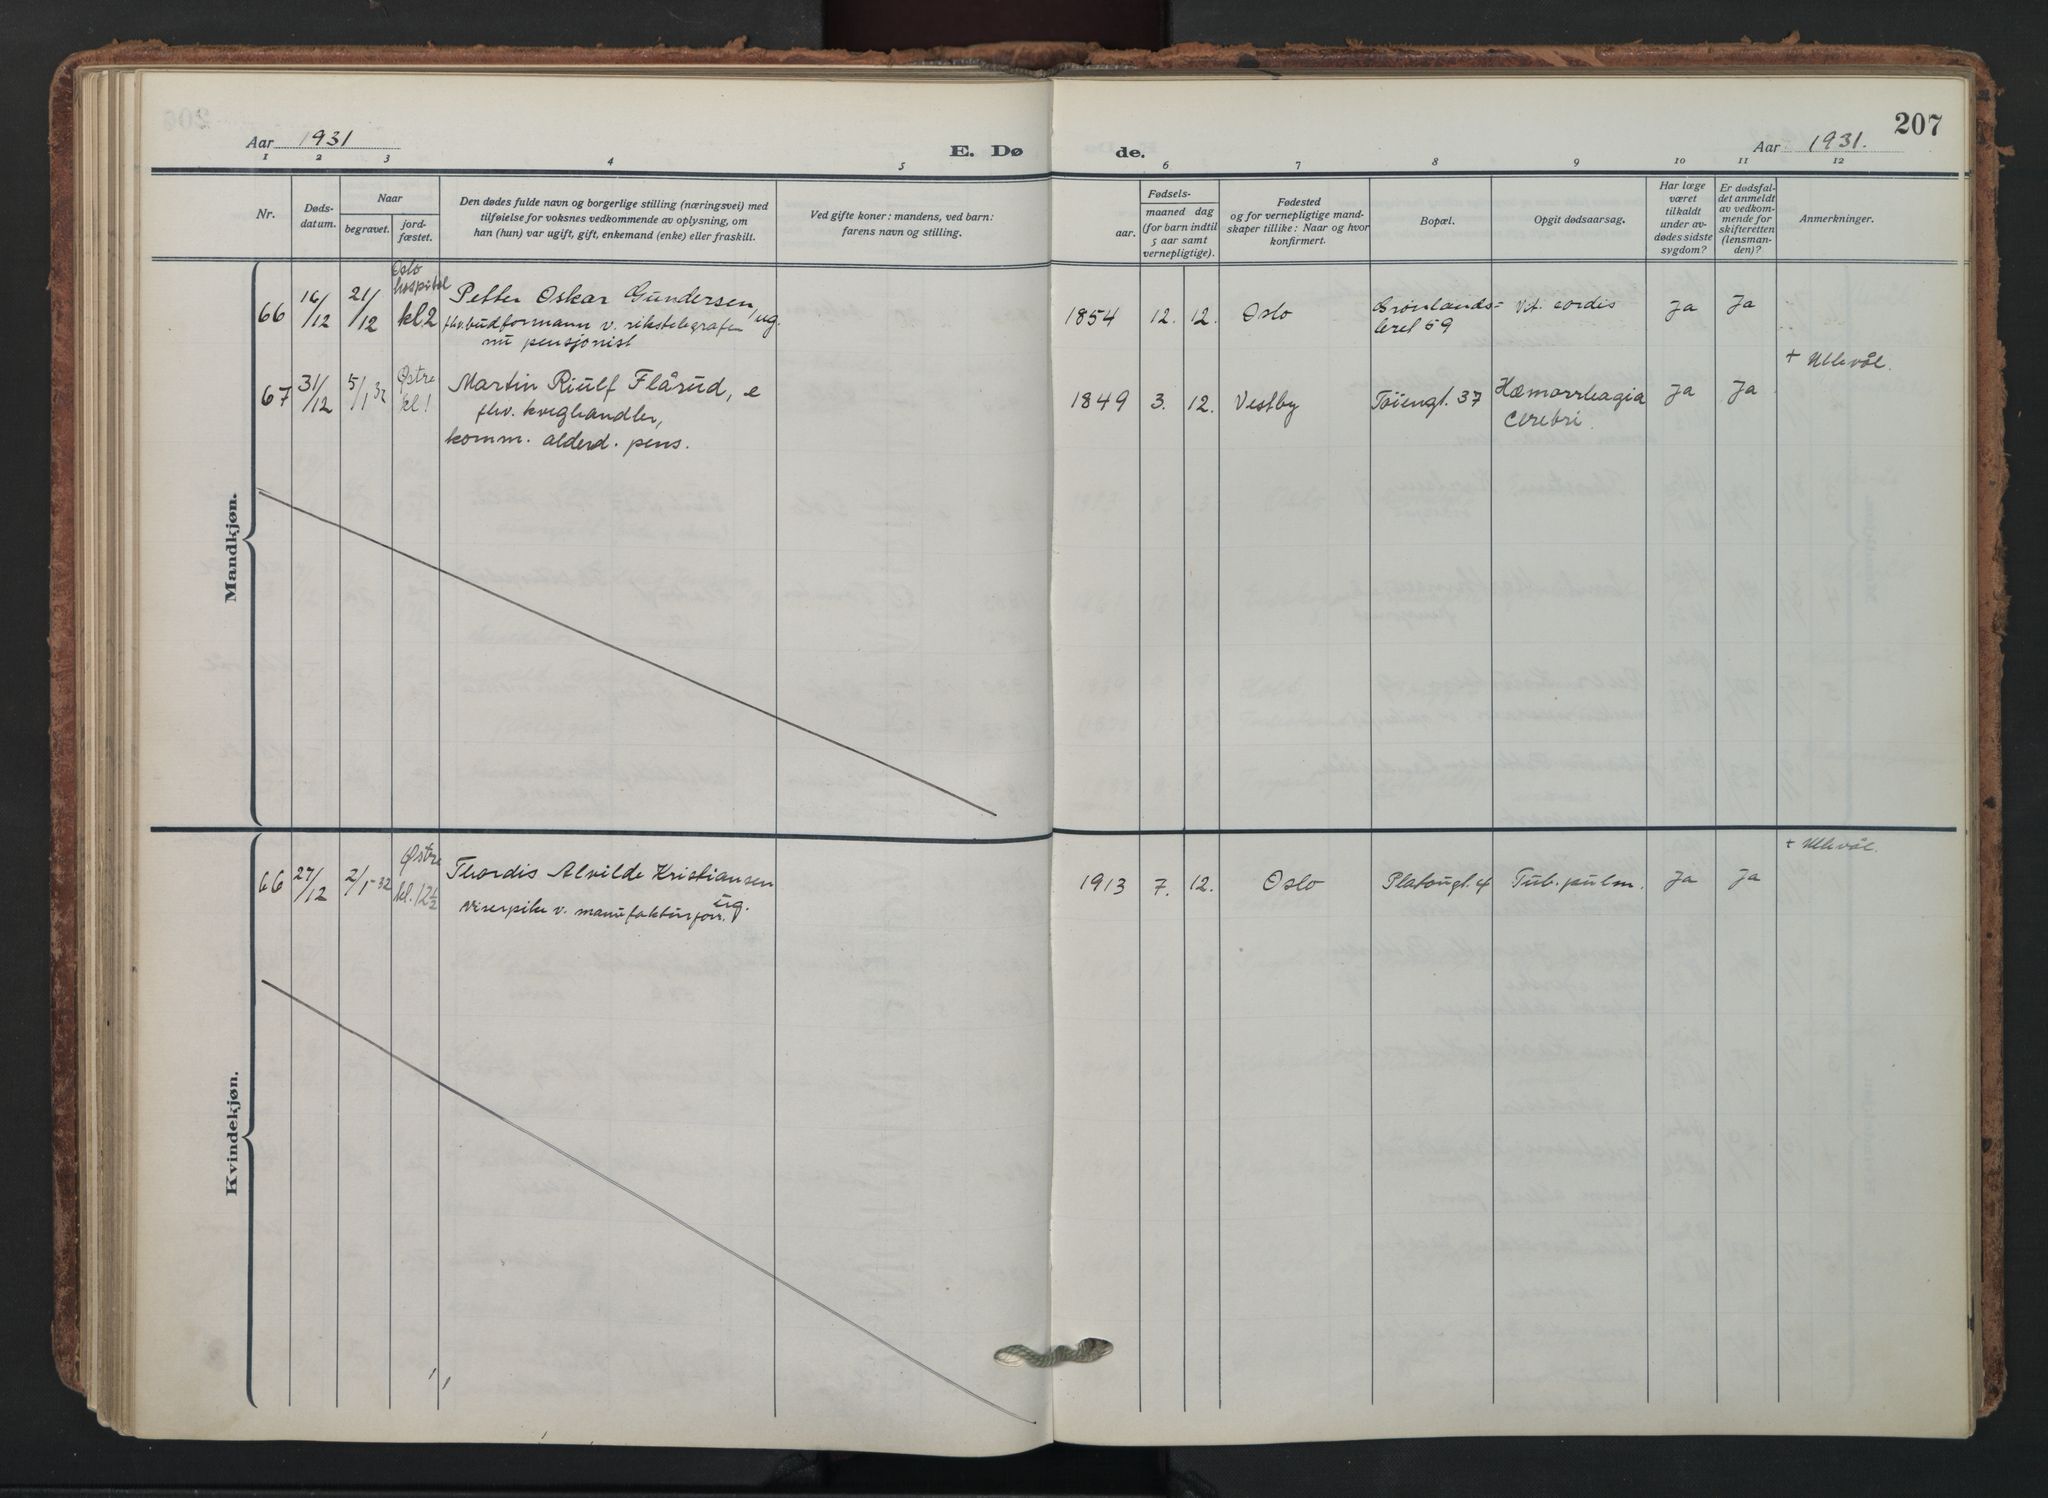 207
Aar 1931
E. Dø
de.
Aar 1931.
1 2 3 4 5 6 7 8 9 10 11 12
Nr.
Døds-
datum.
Naar
begravet.
jord-
fæstet.
Den dødes fulde navn og borgerlige stilling (næringsvei) med
tilføielse for voksnes vedkommende av oplysning, om
han (hun) var ugift, gift, enkemand (enke) eller fraskilt.
Ved gifte koner: mandens, ved barn:
farens navn og stilling.
Fødsels-
aar.
maaned dag
(for barn indtil
5 aar samt
vernepligtige).
Fødested
og for vernepligtige mand-
skaper tillike: Naar og hvor
konfirmert.
Bopæl.
Opgit dødsaarsag.
Har læge
været
tilkaldt
under av-
dødes sidste
sygdom?
Er dødsfal-
det anmeldt
av vedkom-
mende for
skifteretten
(lensman-
den)?
Anmerkninger.
Mandkjøn.
Oslo
hospital
66 16/12 21/12 kl. 2 Petter Oskar Gundersen, ug. 1854 12. 12. Oslo Grønlands- Vit. cordis Ja Ja
fhv. budformann v. rikstelegrafen leret 59
nu pensjonist
+ Ullevål.
67 31/12 5/1 32 Østre kl 1 Martin Riulf Flårud, e 1849 3. 12. Vestby Töiengt. 37 Hæmorrhagia Ja Ja
fhv. kveghandler, cerebri
komm. alderd. pens.
Kvindekjøn.
+ Ullevål.
66 27/12 2/1-32 Østre kl. 12½ Thordis Alvilde Kristiansen 1913 7. 12. Oslo Platougt. 4 Tub. pulm. Ja Ja
viserpike v. manufakturforr. ug.